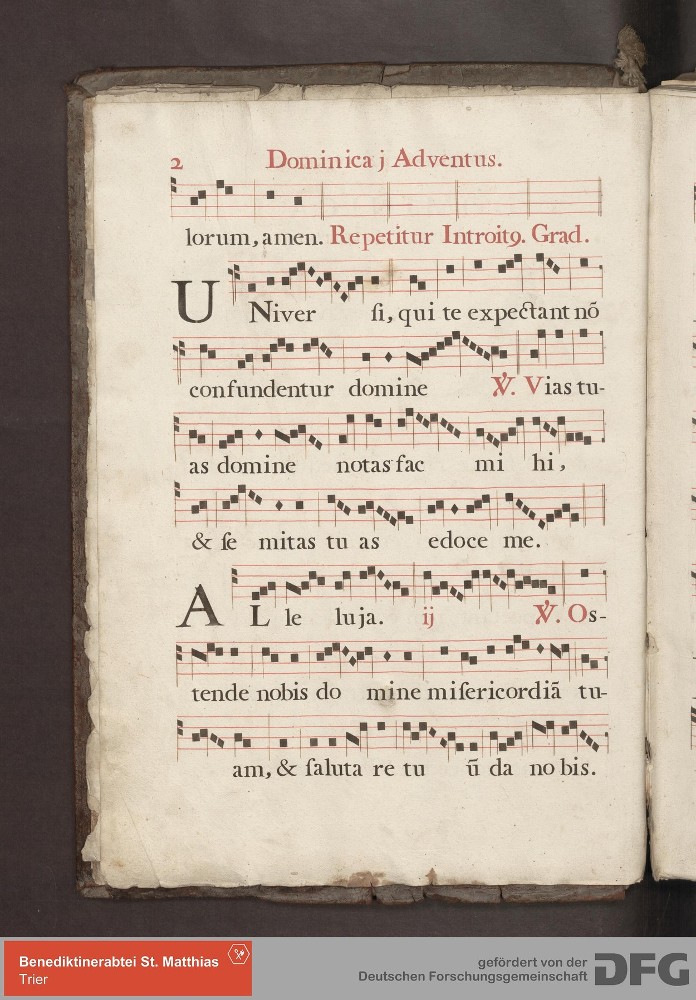 2 Dominica j Adventus.
lorum, amen. Repetitur Introitꝯ. Grad.
UNiver ſi, qui te expectant nō
confundentur domine ℣. Vias tu-
as domine notas fac mi hi,
& ſe mitas tu as edoce me.
ALle luja. ij ℣. Os-
tende nobis do mine miſericordiā tu-
am, & ſaluta re tu ū da no bis.
Benediktinerabtei St. Matthias
Trier
gefördert von der
Deutschen Forschungsgemeinschaft
DFG